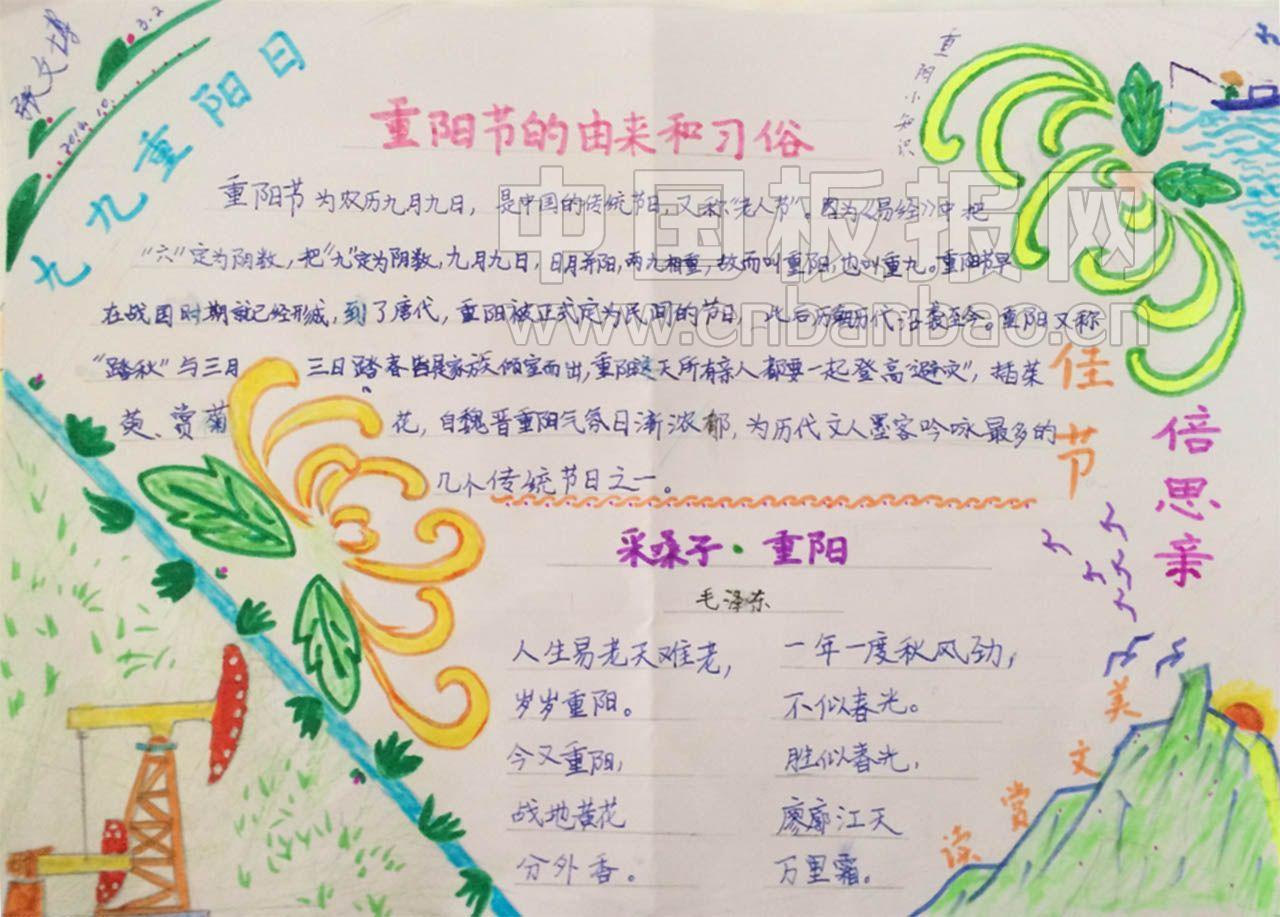 张文博
2014.10.
3.2
九九重阳日
重阳小知识
重阳节的由来和习俗
重阳节为农历九月九日，是中国的传统节日，又称“老人节”。因为《易经》中把
“六”定为阴数，把“九”定为阴数，九月九日，日月并阳，两九相重，故而叫重阳，也叫重九。重阳节早
在战国时期就已经形成，到了唐代，重阳被正式定为民间的节日，此后历朝历代沿袭至今。重阳又称
“踏秋”与三月三日踏春皆是家族倾室而出，重阳这天所有亲人都要一起登高“避灾”，插茱
萸、赏菊花，自魏晋重阳气氛日渐浓郁，为历代文人墨客吟咏最多的
几个传统节日之一。
佳节
倍思亲
采桑子·重阳
毛泽东
人生易老天难老，
岁岁重阳。
今又重阳，
战地黄花
分外香。
一年一度秋风劲，
不似春光。
胜似春光，
廖廓江天
万里霜。
美文赏读
中国板报网
www.cnbanbao.cn